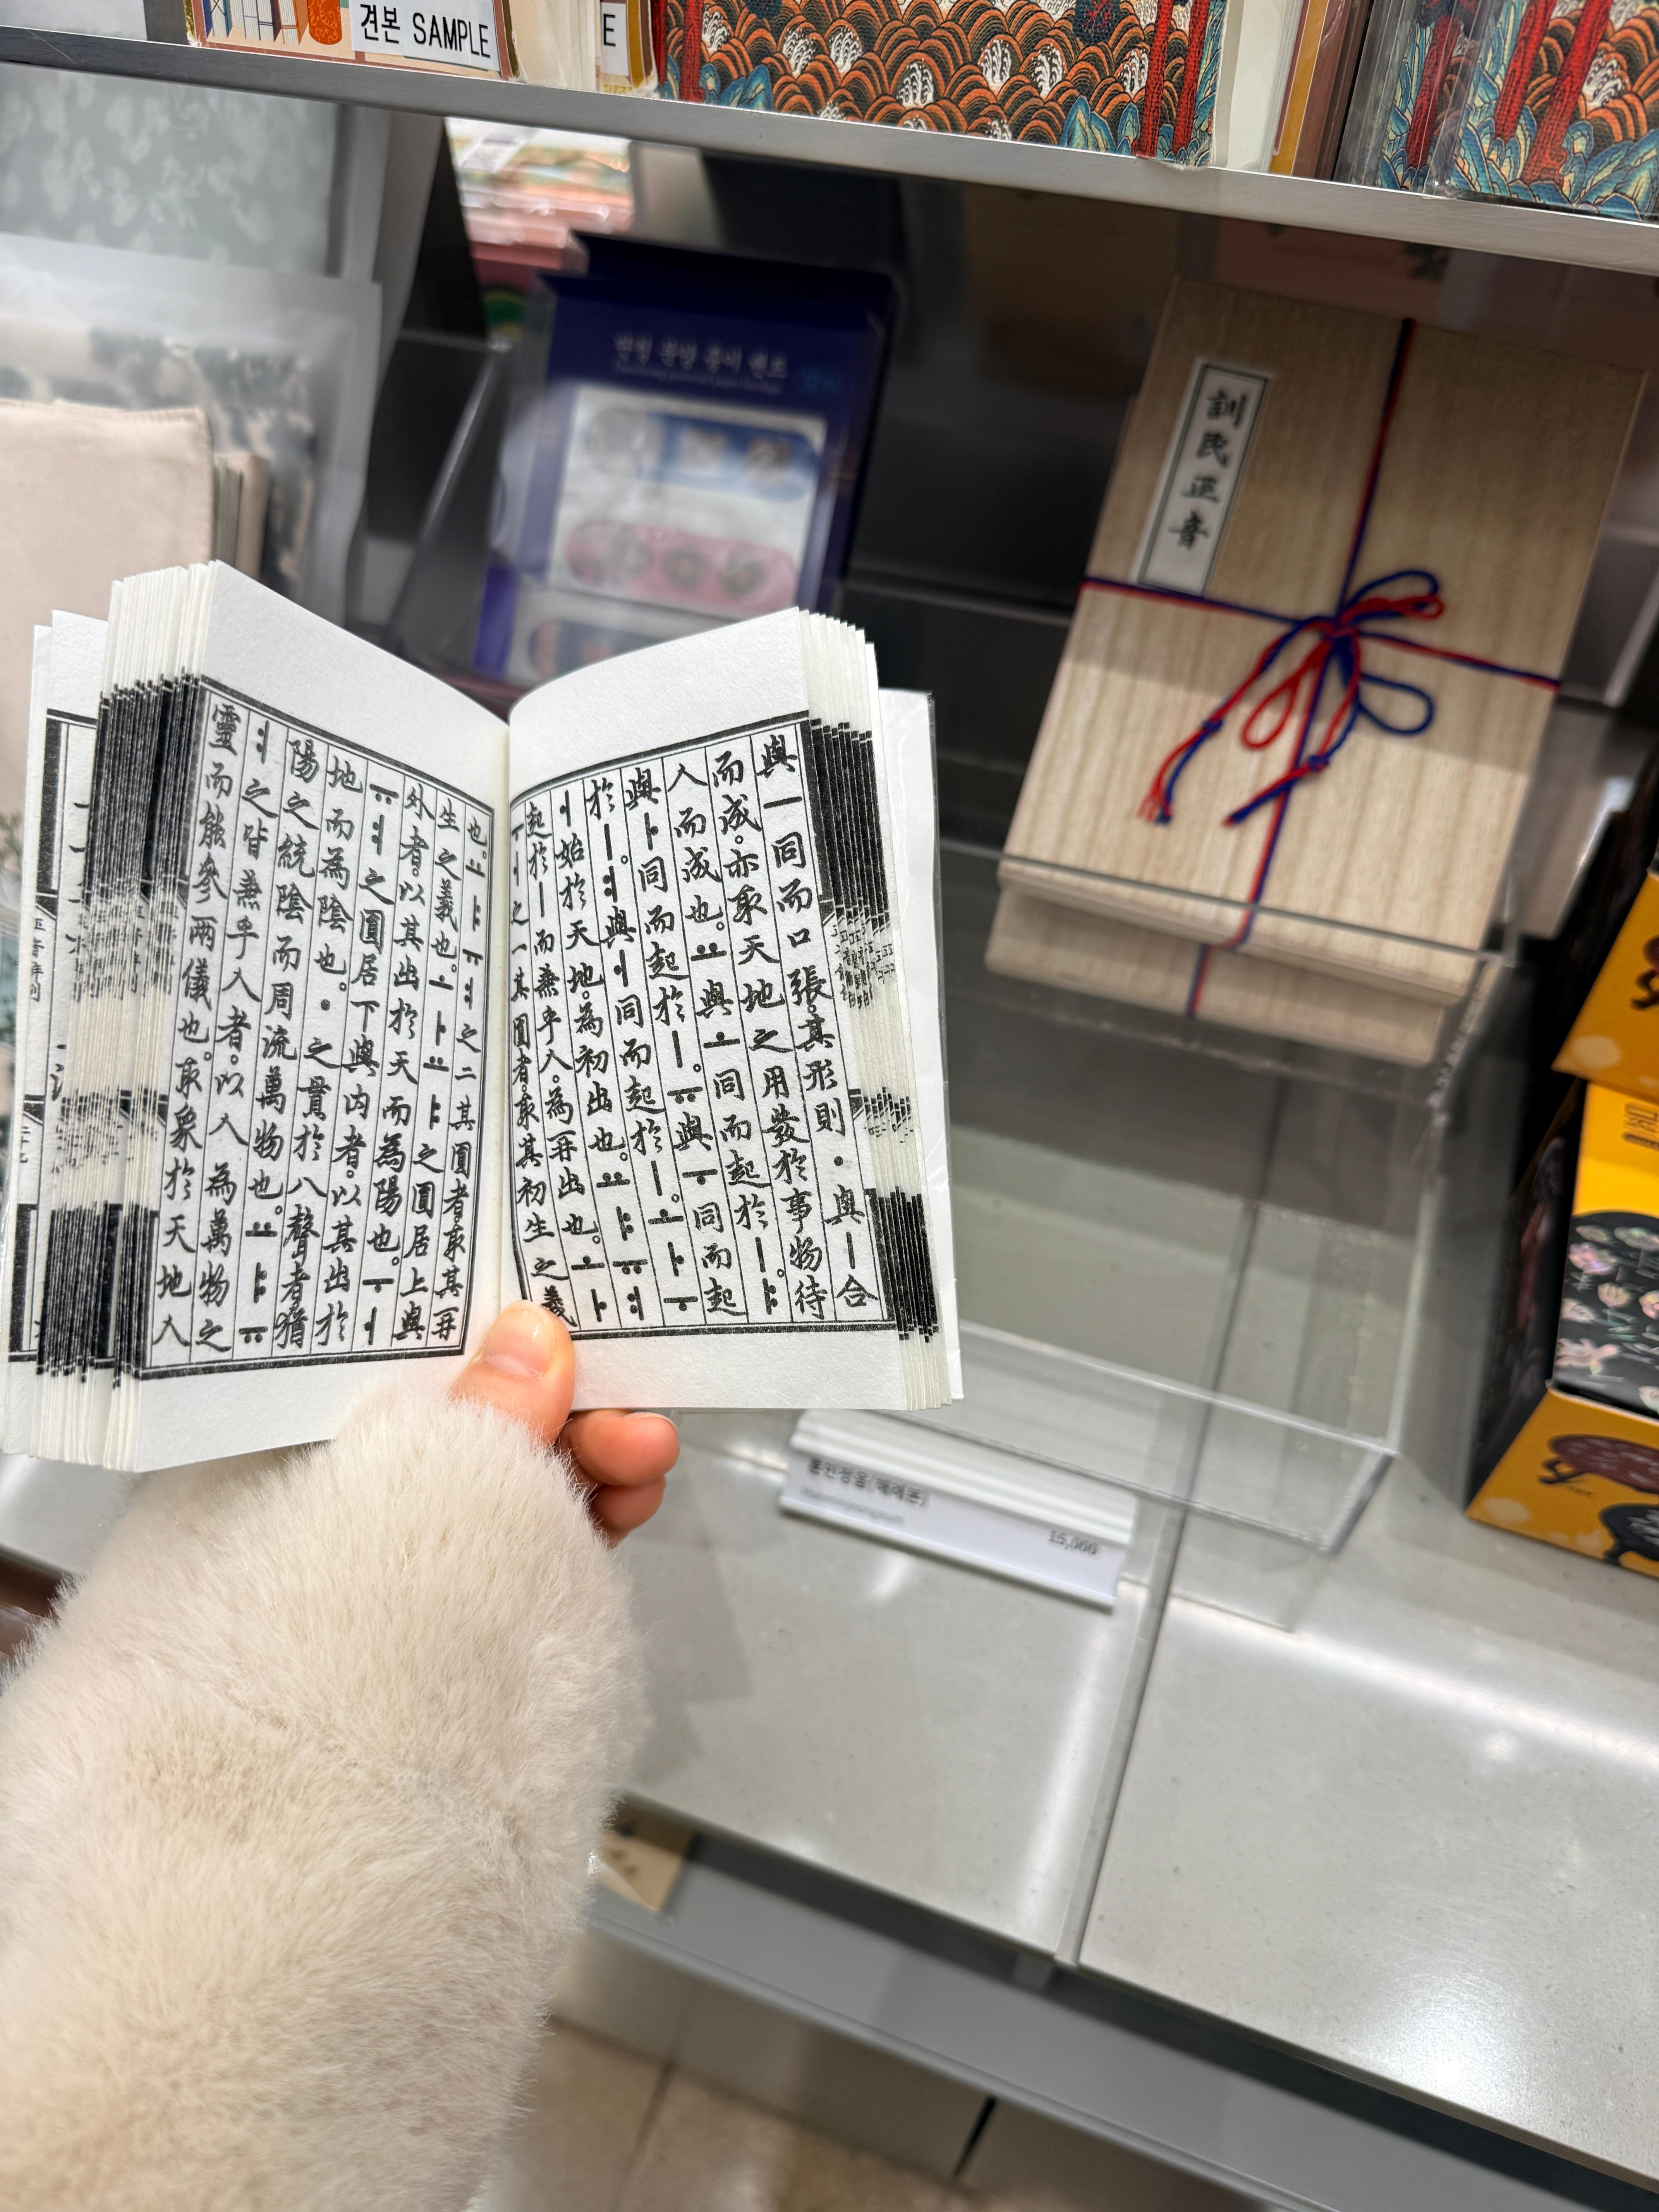 견본 SAMPLE
E
訓民正音
與ㅡ同而口張。其形則ㆍ與ㅣ合
而成。亦取天地之用發於事物待
人而成也。ㅛ與ㅗ同而起於ㅣ。ㅑ
與ㅏ同而起於ㅣ。ㅠ與ㅜ同而起
於ㅣ。ㅕ與ㅓ同而起於ㅣ。ㅗㅏㅜ
ㅓ始於天地。為初出也。ㅛㅑㅠㅕ
起於ㅣ而兼乎人。為再出也。ㅗㅏ
ㅜㅓ之一其圓者。取其初生之義
也。ㅛㅑㅠㅕ之二其圓者。取其再
生之義也。ㅗㅏㅛㅑ之圓居上與
外者。以其出於天而為陽也。ㅜㅓ
ㅠㅕ之圓居下與內者。以其出於
地而為陰也。ㆍ之貫於八聲者。猶
陽之統陰而周流萬物也。ㅛㅑㅠ
ㅕ之皆兼乎人者。以人為萬物之
靈而能參兩儀也。取象於天地人
훈민정음(해례본)
15,000